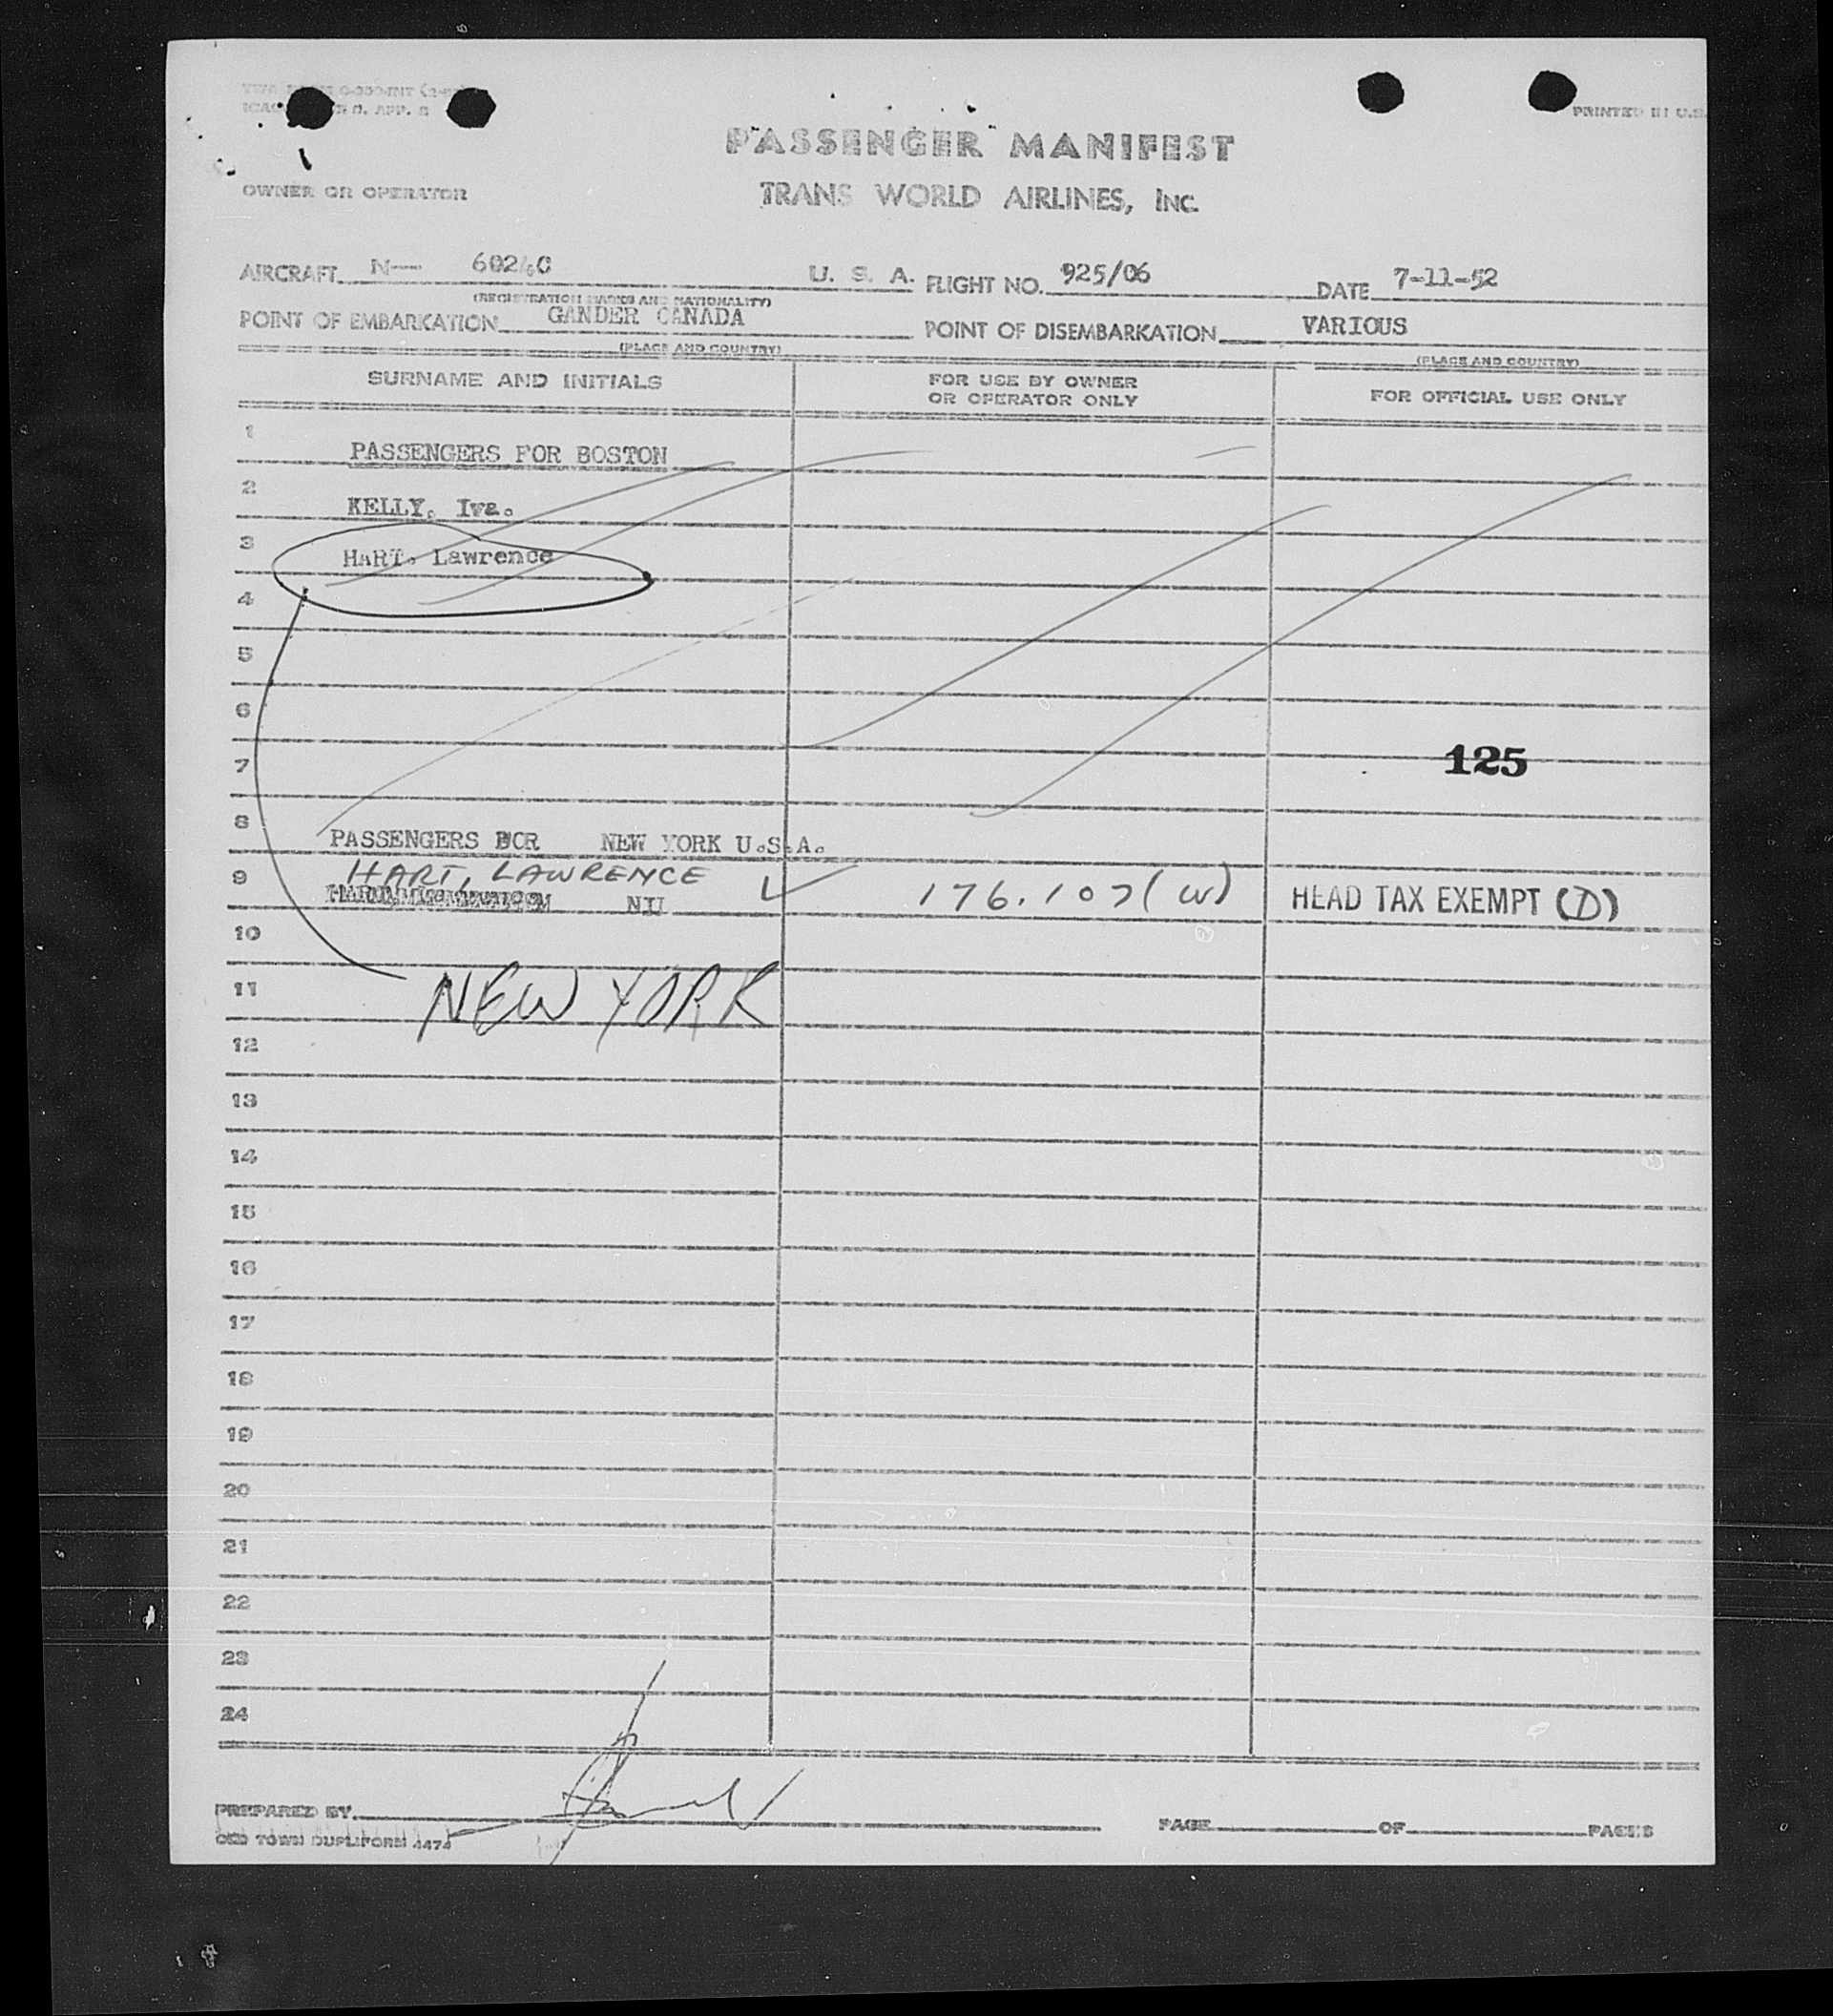 PRINTED IN U.S.
PASSENGER MANIFEST
OWNER OR OPERATOR
TRANS WORLD AIRLINES, INC.
AIRCRAFT N— U. S. A. FLIGHT NO. 925/06 DATE 7-11-52
(REGISTRATION MARKS AND NATIONALITY)
POINT OF EMBARKATION GANDER CANADA POINT OF DISEMBARKATION VARIOUS
(PLACE AND COUNTRY) (PLACE AND COUNTRY)
SURNAME AND INITIALS FOR USE BY OWNER OR OPERATOR ONLY FOR OFFICIAL USE ONLY
1 PASSENGERS FOR BOSTON
2 KELLY. Iva.
3 HART. Lawrence
4
5
6
7 125
8 PASSENGERS FOR NEW YORK U.S.A.
HART, LAWRENCE
9 NIL 176.107(W) HEAD TAX EXEMPT (D)
10
11 NEW YORK
12
13
14
15
16
17
18
19
20
21
22
23
24
PREPARED BY PAGE OF PAGES
OLD TOWN DUPLIFORM 4474